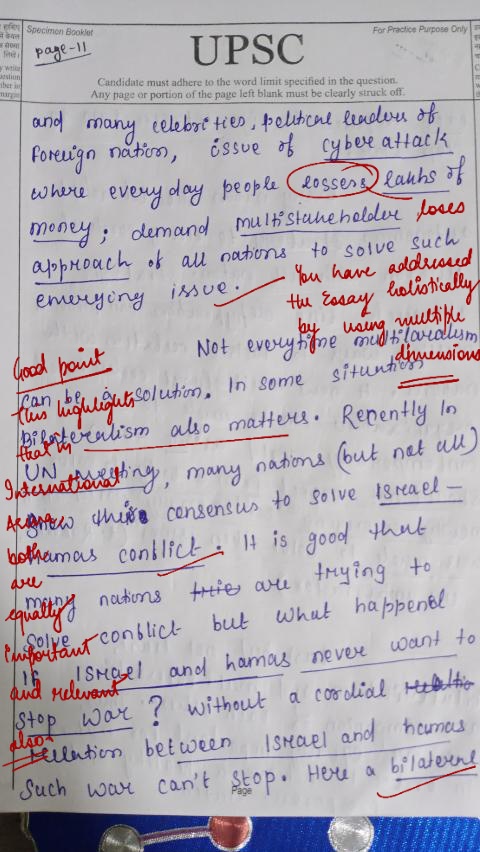 Specimen Booklet
For Practice Purpose Only
page-11
UPSC
Candidate must adhere to the word limit specified in the question.
Any page or portion of the page left blank must be clearly struck off.
and many celebrities, political leaders of
foreign nation, issue of cyber attack
where everyday people lossess lakhs of
money; demand multistakeholder loses
approach of all nations to solve such
emerging issue.
You have addressed
the Essay holistically
by using multiple
dimensions
Not everytime multilaralism
can be a solution. In some situation
Bilateralism also matters. Recently In
UN meeting, many nations (but not all)
show their consensus to solve Israel-
Hamas conflict. It is good that
many nations are trying to
solve conflict but what happened
If Israel and hamas never want to
stop war? without a cordial
rellation between Israel and hamas
Such war can't stop. Here a bilaterne
Good point
this highlights
that in
International
both
are
equally
important
and relevant
also
Page